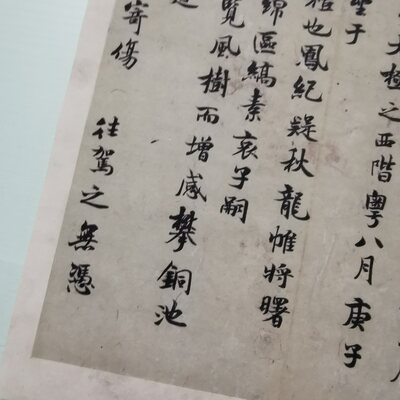 極之西階粤八月庚子
于
禮也鳳紀疑秋龍帷將曙
綿區縞素哀子嗣
覽風樹而增感攀銅池
寄傷 往駕之無憑